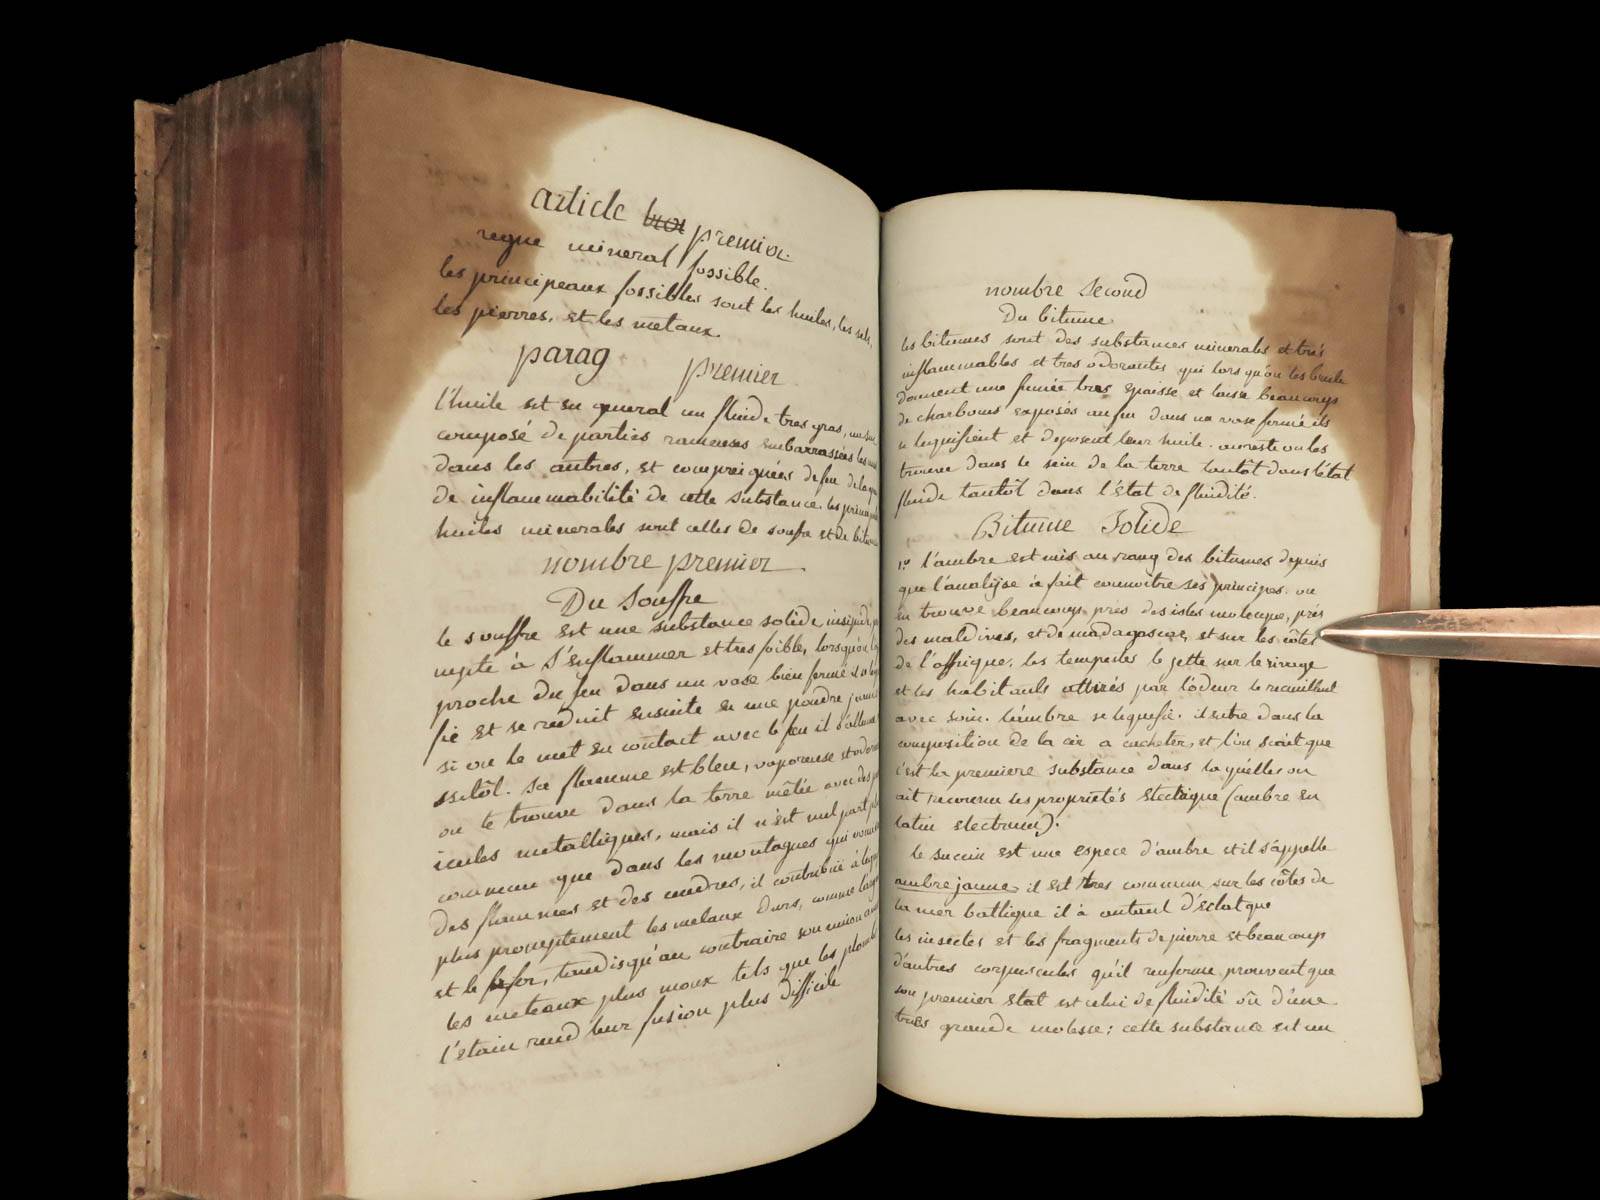 article premier
regne mineral fossible.
les principeaux fossibles sont les huiles, les sels,
les pierres, et les metaux
parag premier
l'huile est en general un fluide tres gras, un
composé de parties rameuses embarrassées les unes
dans les autres, et compreignées de feu de la
de inflammabilité de cette substance. les
huiles minerales sont celles de soufre et de bitume
nombre premier.
Du Souffre
le souffre est une substance solide, insipide,
à s'enflammer et tres foible, lorsqu'on l'
proche du feu dans un vase bien fermé il se
fie et se réduit ensuite en une poudre jaune
si on le met en contact avec le feu il s'allume
ssitôt. sa flamme est bleu, vaporeuse et
on le trouve dans la terre mêlée avec des
icules metalliques, mais il n'est nul part
commun que dans les montagnes qui
des flammes et des cendres, il contribuë à
plus promptement les metaux durs, comme
et le fer, tandis qu'au contraire son union
les meteaux plus moux tels que les plomb
l'étain rend leur fusion plus difficile
nombre Second
Du bitume
les bitumes sont des substances minerales et très
inflammables et tres odorantes qui lors qu'on les brule
donnent une fumée tres epaisse et laisse beaucoup
de charbons exposés au feu dans un vase fermé ils
se liquifient et deposent leur huile. au reste on les
trouve dans le sein de la terre tantôt dans l'état
fluide tantôt dans l'état de fluidité.
Bitume Solide
1º l'ambre est mis au rang des bitumes depuis
que l'analyse à fait connoître ses principes. on
en trouve beaucoup près des isles moluque, près
des maldives, et de madagascar, et sur les côtes
de l'affrique. les tempestes le jette sur le rivage
et les habitants attirés par l'odeur le recueillent
avec soin. l'ambre se liquefie. il entre dans la
composition de la cir a cacheter, et l'on sçait que
c'est la premiere substance dans laquelle on
ait reconnu les propriétés électrique (ambre en
latin electrum).
le succin est une espece d'ambre et il s'appelle
ambre jaune, il est tres commun sur les côtes de
la mer baltique il à autant d'éclat que
les insectes et les fragments de pierre et beaucoup
d'autres corpuscules qu'il renferme prouvent que
son premier état est celui de fluidité où d'une
tres grande molesse; cette substance est un